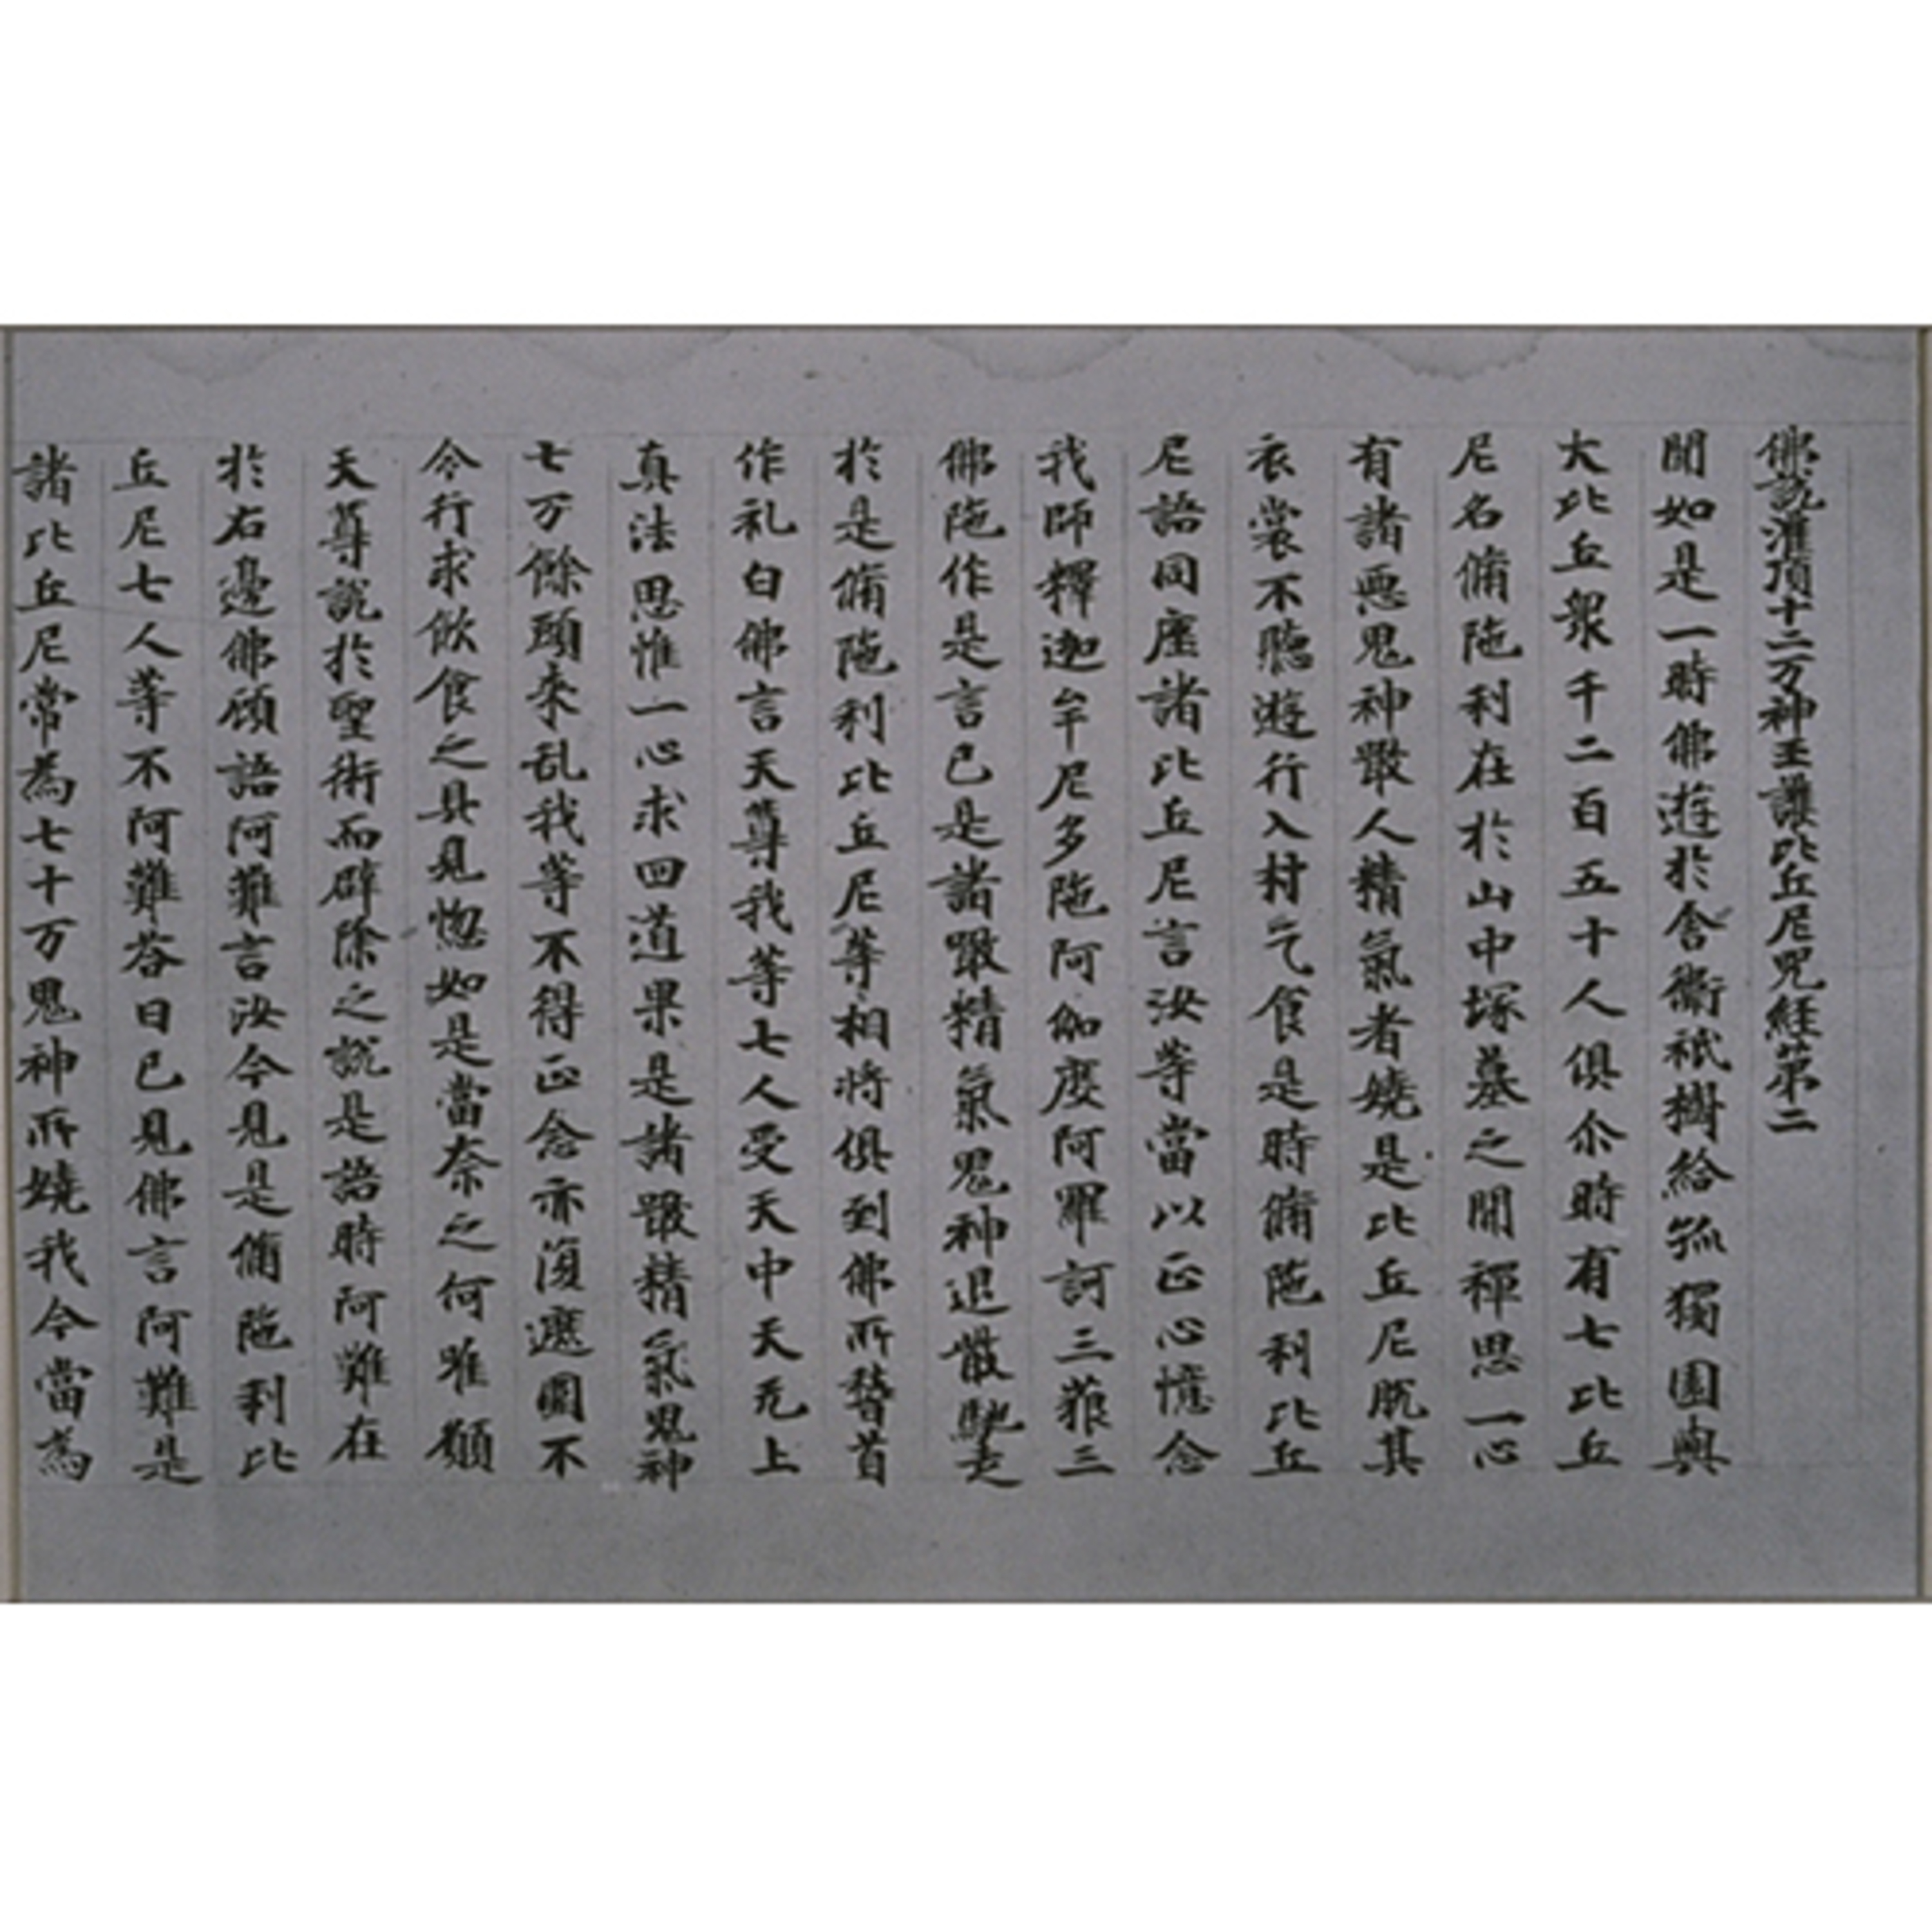 佛說灌頂十二万神王護比丘尼呪経第二
聞如是一時佛遊於舍衛祇樹給孤獨園與
大比丘衆千二百五十人俱尒時有七比丘
尼名脩陁利在於山中塚墓之間禪思一心
有諸惡鬼神噉人精氣者嬈是比丘尼脫其
衣裳不聽遊行入村乞食是時脩陁利比丘
尼語同座諸比丘尼言汝等當以正心憶念
我師釋迦牟尼多陁阿伽度阿羅訶三藐三
佛陁作是言已是諸噉精氣鬼神退散馳走
於是脩陁利比丘尼等相將俱到佛所稽首
作礼白佛言天尊我等七人受天中天无上
真法思惟一心求四道果是諸噉精氣鬼神
七万餘頭来乱我等不得正念亦復遮圍不
令行求飲食之具見惱如是當奈之何唯願
天尊說於聖術而辟除之說是語時阿難在
於右邊佛顧語阿難言汝今見是脩陁利比
丘尼七人等不阿難荅曰已見佛言阿難是
諸比丘尼常為七十万鬼神所嬈我今當為